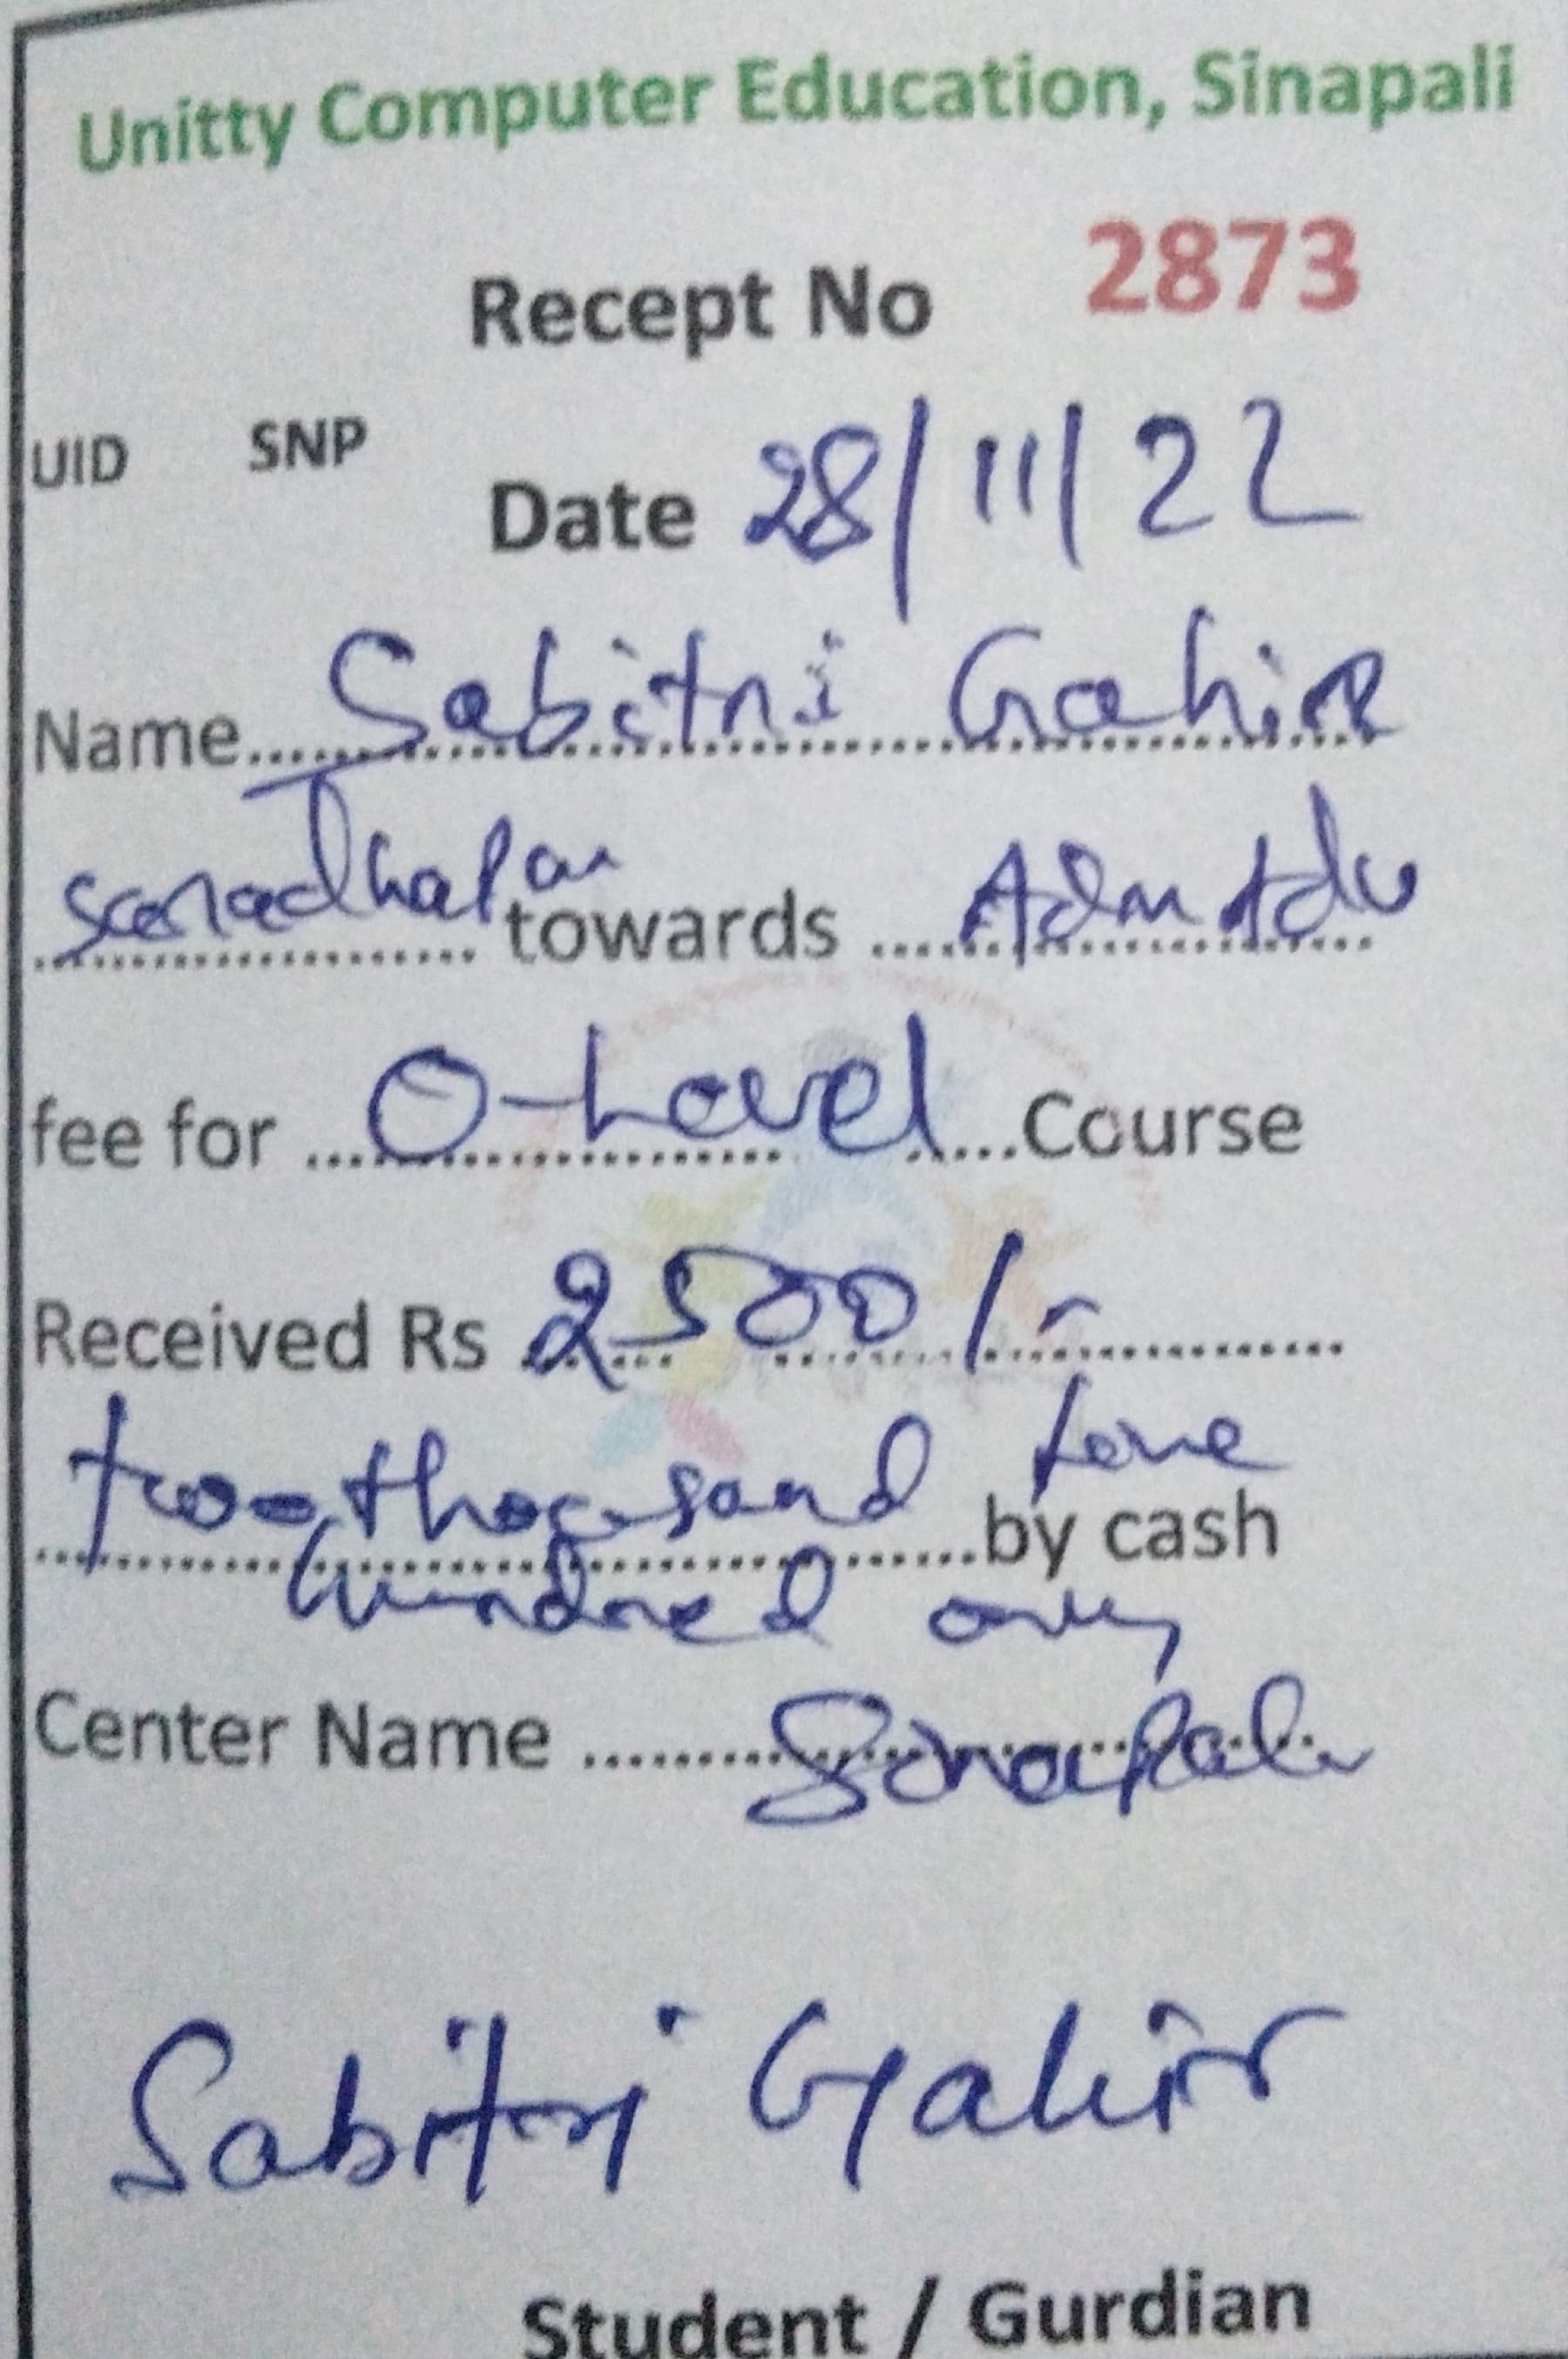 Unitty Computer Education, Sinapali
Recept No 2873
UID SNP
Date 28/11/22
Name Sabitri Gahir
towards
fee for O-Level Course
Received Rs 2500/-
two thousand five
by cash
hundred only
Center Name Sinapali
Sabitri Gahir
Student / Gurdian